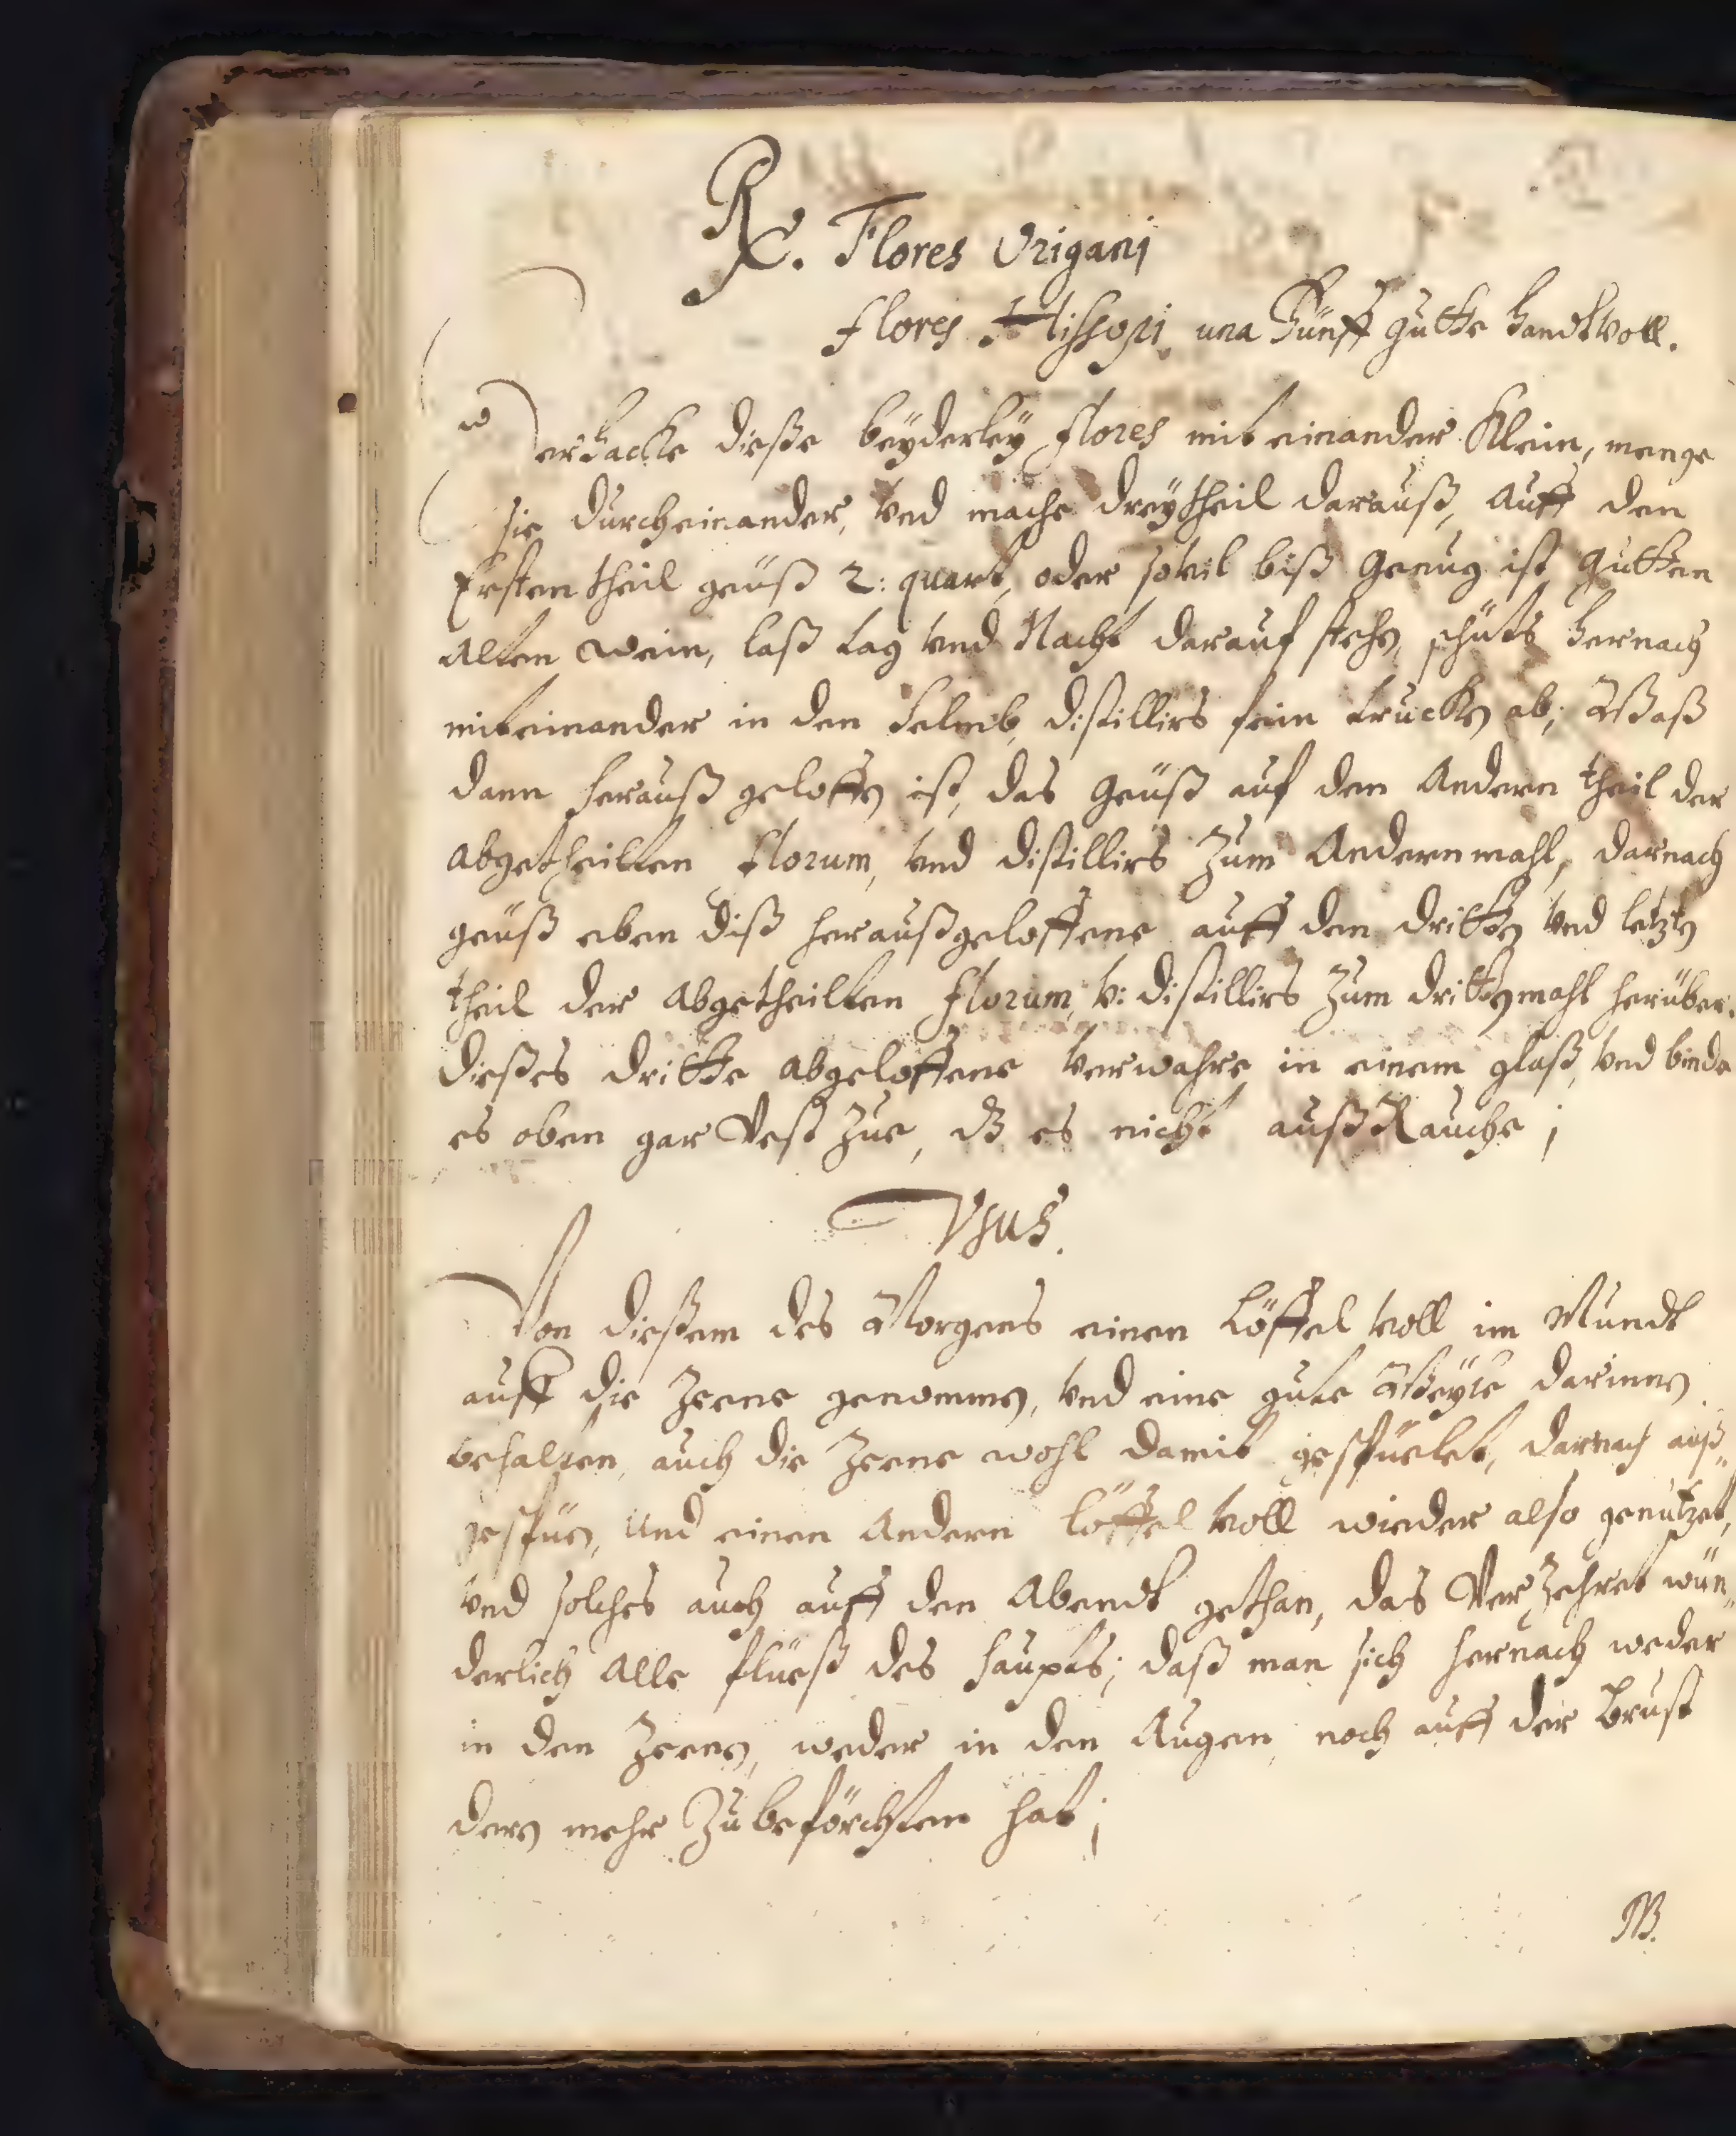 Rx. Flores Origani
flores Hissopi una Fünff gutte handtvoll.
Zerhacke dieße beyderley flores mit einander Klein, menge
sie durcheinander, vnd mache dreytheil darauß, auff den
Ersten theil geuß 2: quart, oder soviel biß genug ist, gutten
alten wein, laß tag vnd Nacht darauf stehn, schüts hernach
miteinander in den helmb, distillirs fein truckn ab; Waß
dann herauß geloffn ist, das geuß auf den Andern theil der
abgetheilten florum, vnd distillirs Zum Andernmahl, darnach
geuß eben diß heraußgeloffene auff den drittn vnd letztn
theil der abgetheilten florum, v: distillirs Zum drittnmahl herüber.
dießes dritte abgeloffene verwahre in einem glaß, vnd binde
es oben gar Vest Zue, dz es nicht außRauche;
Vsus.
Von dießem des Morgens einen Löffel voll im Mundt
auff die Zeene genommn, vnd eine gute Weyle darinnen
behalten, auch die Zeene wohl damit gespüelet, darnach auß„
gespüen, und einen Andern löffel voll wieder also genützet,
vnd solches auch auff den Abendt gethan, das VerZehret wun„
derlich alle flüeß des haupts; daß man sich hernach weder
in den Zeenen, weder in den Augen, noch auff der Brust
deren mehr Zubeförchten hat;
NB.